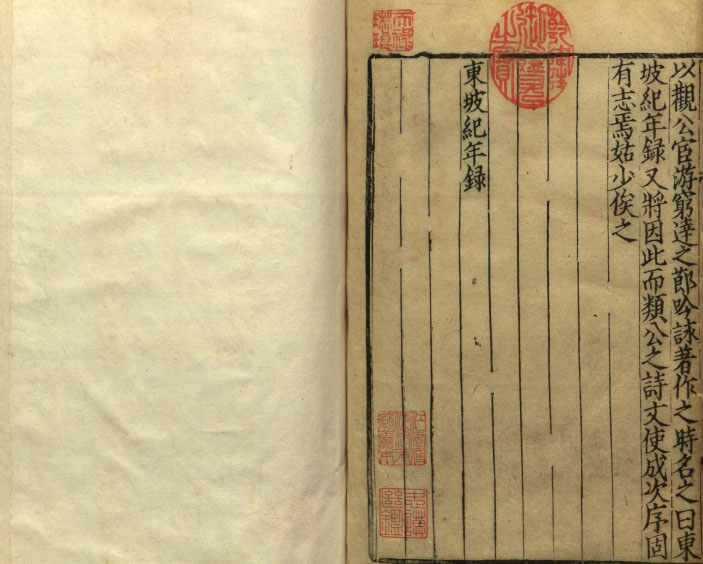 以觀公宦游窮達之節吟詠著作之時名之曰東
坡紀年録又將因此而類公之詩文使成次序固
有志焉姑少俟之
東坡紀年録